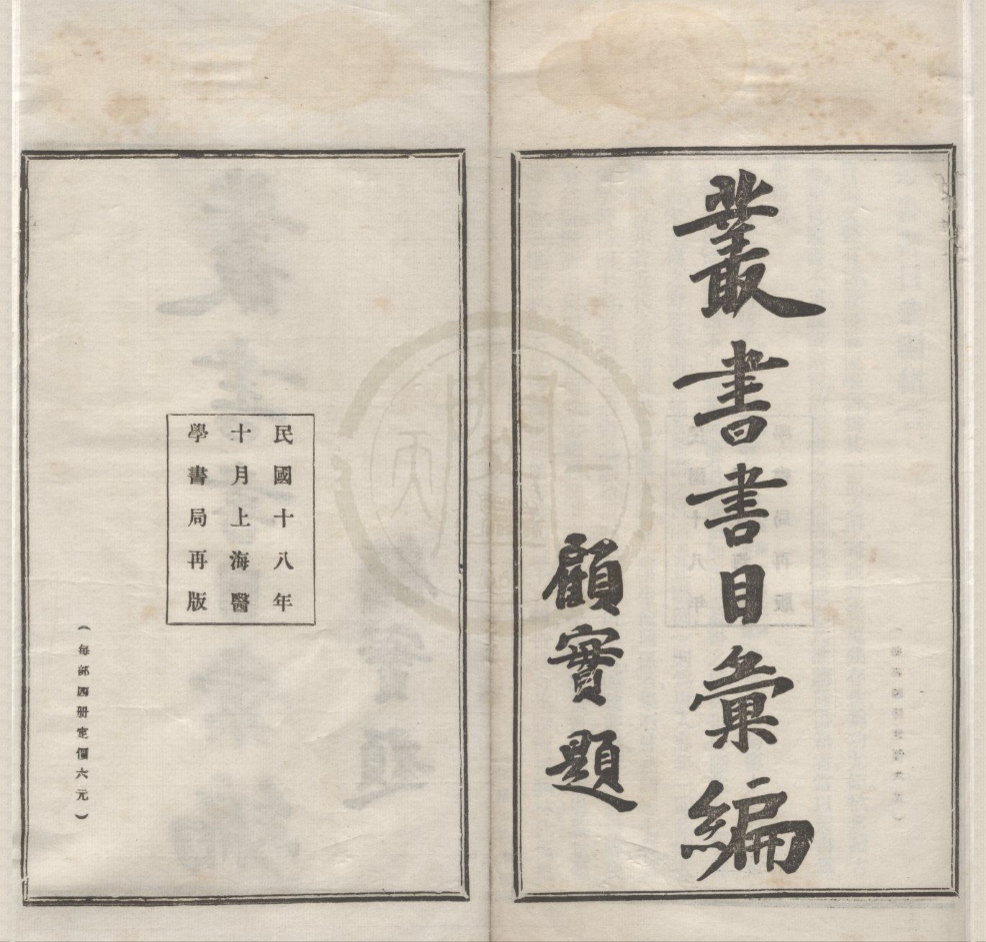 叢書書目彙編
顧實題
民國十八年
十月上海醫
學書局再版
(每部四冊定價六元)